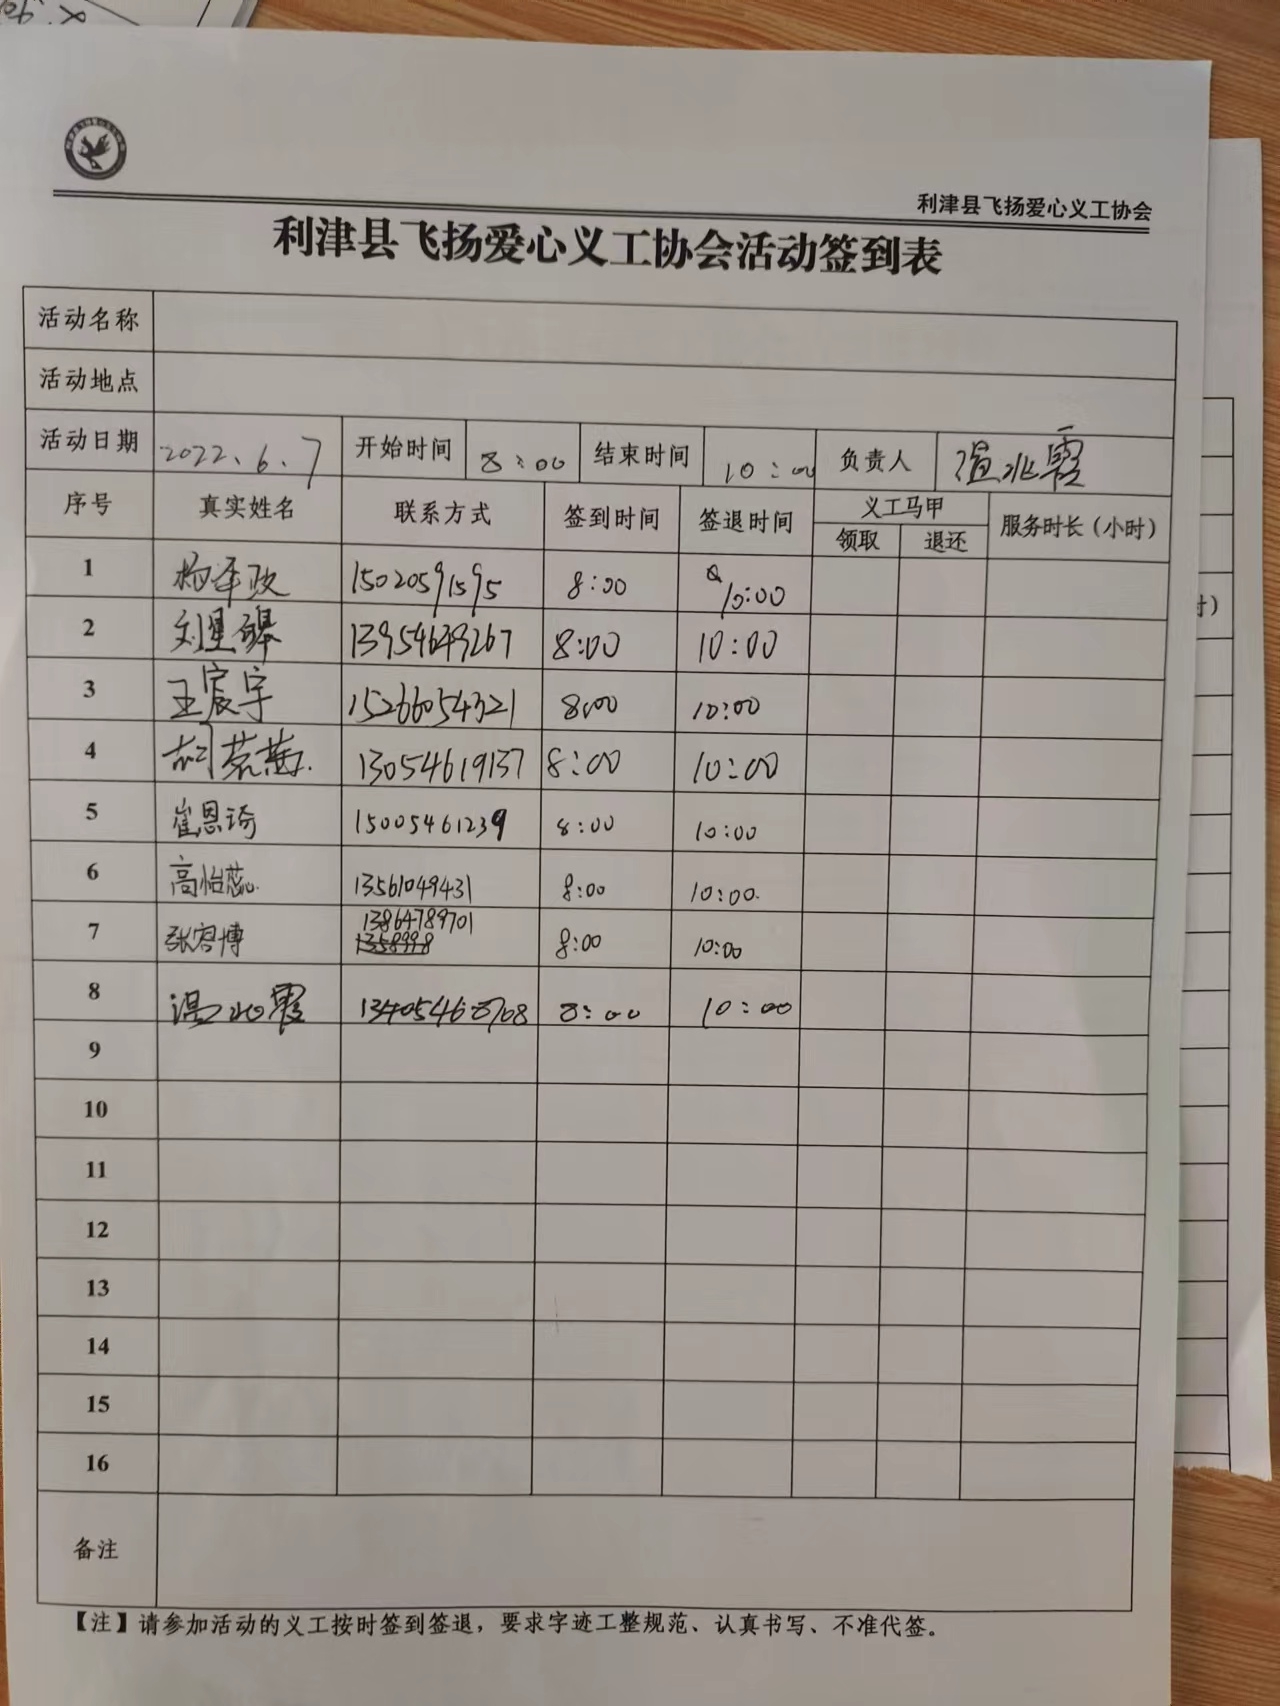 利津县飞扬爱心义工协会
利津县飞扬爱心义工协会活动签到表
活动名称
活动地点
活动日期 2022.6.7 开始时间 8:00 结束时间 10:00 负责人 温兆霞
序号 真实姓名 联系方式 签到时间 签退时间 义工马甲 服务时长（小时）
领取 退还
1 杨泽政 15020591595 8:00 10:00
2 刘星 13954649267 8:00 10:00
3 王宸宇 15266054321 8:00 10:00
4 胡 13054619137 8:00 10:00
5 崔恩琦 15005461239 8:00 10:00
6 高怡蕊 13561049431 8:00 10:00
7 张容博 13864789701 8:00 10:00
8 温兆霞 8:00 10:00
9
10
11
12
13
14
15
16
备注
【注】请参加活动的义工按时签到签退，要求字迹工整规范、认真书写、不准代签。